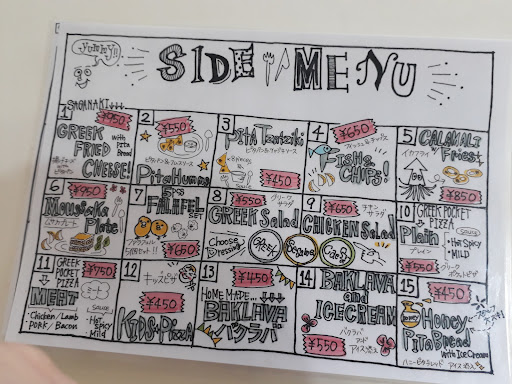 yummy!!
SIDE MENU
1
SAGANAKI
¥950
GREEK
with
Pita
Bread
FRIED
CHEESE!
2
¥550
ピタパン&フムスソース
Pita Humus
3
Pita Tzatziki
¥450
4
¥650
フィッシュ&チップス
Fish&
CHIPS!
5
CALAMALI
Fries!
イカフライ
¥850
6
¥950
Moussaka
Plate
7
5PS
FALAFEL
SET
ファラフェル
¥650
8
¥550
グリークサラダ
GREEK Salad
Choose
Dressing
GREEK
9
¥650
チキンサラダ
CHICKEN Salad
Sesame
Caesar
10
GREEK POCKET
PIZZA
Plain
プレーン
SAUCE
・Hot Spicy
・MILD
¥550
グリーク
ポケットピザ
11
GREEK
POCKET
PIZZA
¥750
MEAT
ミート
・Chicken/Lamb
PORK/Bacon
SAUCE
Hot
Spicy
Mild
12
キッズピザ
¥450
Kids Pizza
13
¥450
HOME MADE...
BAKLAVA
バクラバ
14
BAKLAVA
and
ICECREAM
¥550
バクラバ
アンド
アイス添え
15
¥450
Honey
Honey
Pita Bread
with Ice Cream
ハニーピタブレッド
アイス添え